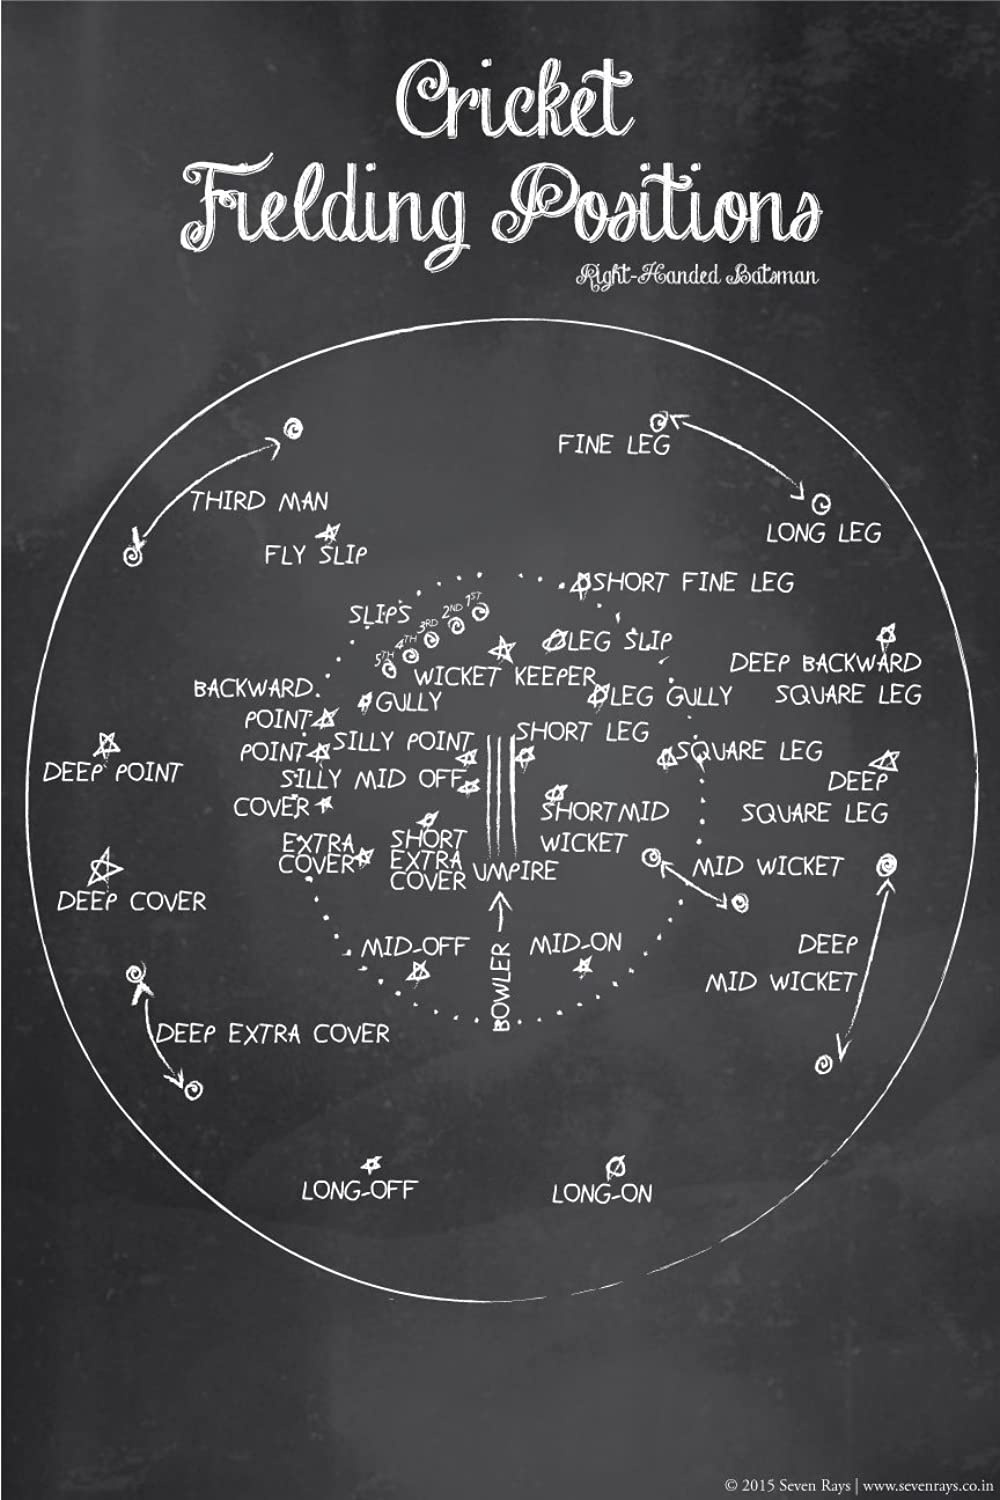 Cricket
Fielding Positions
Right-Handed Batsman
FINE LEG
THIRD MAN
LONG LEG
FLY SLIP
SHORT FINE LEG
SLIPS
1ST
2ND
3RD
4TH
5TH
LEG SLIP
WICKET KEEPER
DEEP BACKWARD
SQUARE LEG
BACKWARD
POINT
GULLY
LEG GULLY
SHORT LEG
SILLY POINT
POINT
SQUARE LEG
DEEP POINT
SILLY MID OFF
DEEP
SQUARE LEG
COVER
SHORT MID
WICKET
EXTRA
COVER
SHORT
EXTRA
COVER
UMPIRE
MID WICKET
DEEP COVER
MID-OFF
MID-ON
BOWLER
DEEP
MID WICKET
DEEP EXTRA COVER
LONG-OFF
LONG-ON
© 2015 Seven Rays | www.sevenrays.co.in